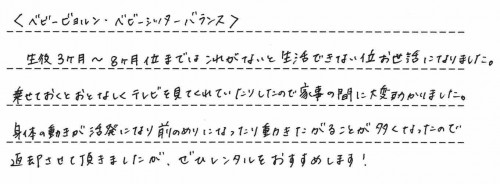 ＜ベビービョルン・ベビーシッターバランス＞
生後3ヶ月～8ヶ月位まではこれがないと生活できない位お世話になりました。
乗せておくとおとなしくテレビを見てくれていたりしたので家事の間に大変助かりました。
身体の動きが活発になり前のめりになったり動きたがることが多くなったので
返却させて頂きましたが、ぜひレンタルをおすすめします！